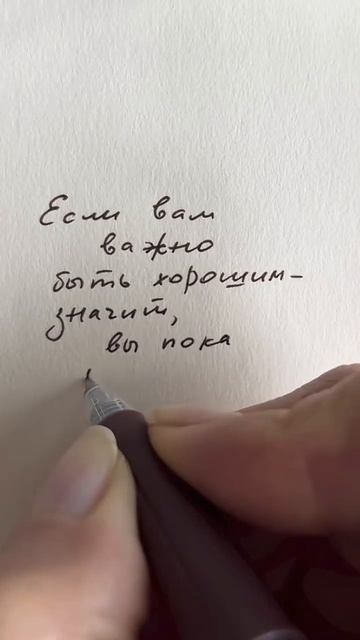 Если вам
важно
быть хорошим–
значит,
вы пока